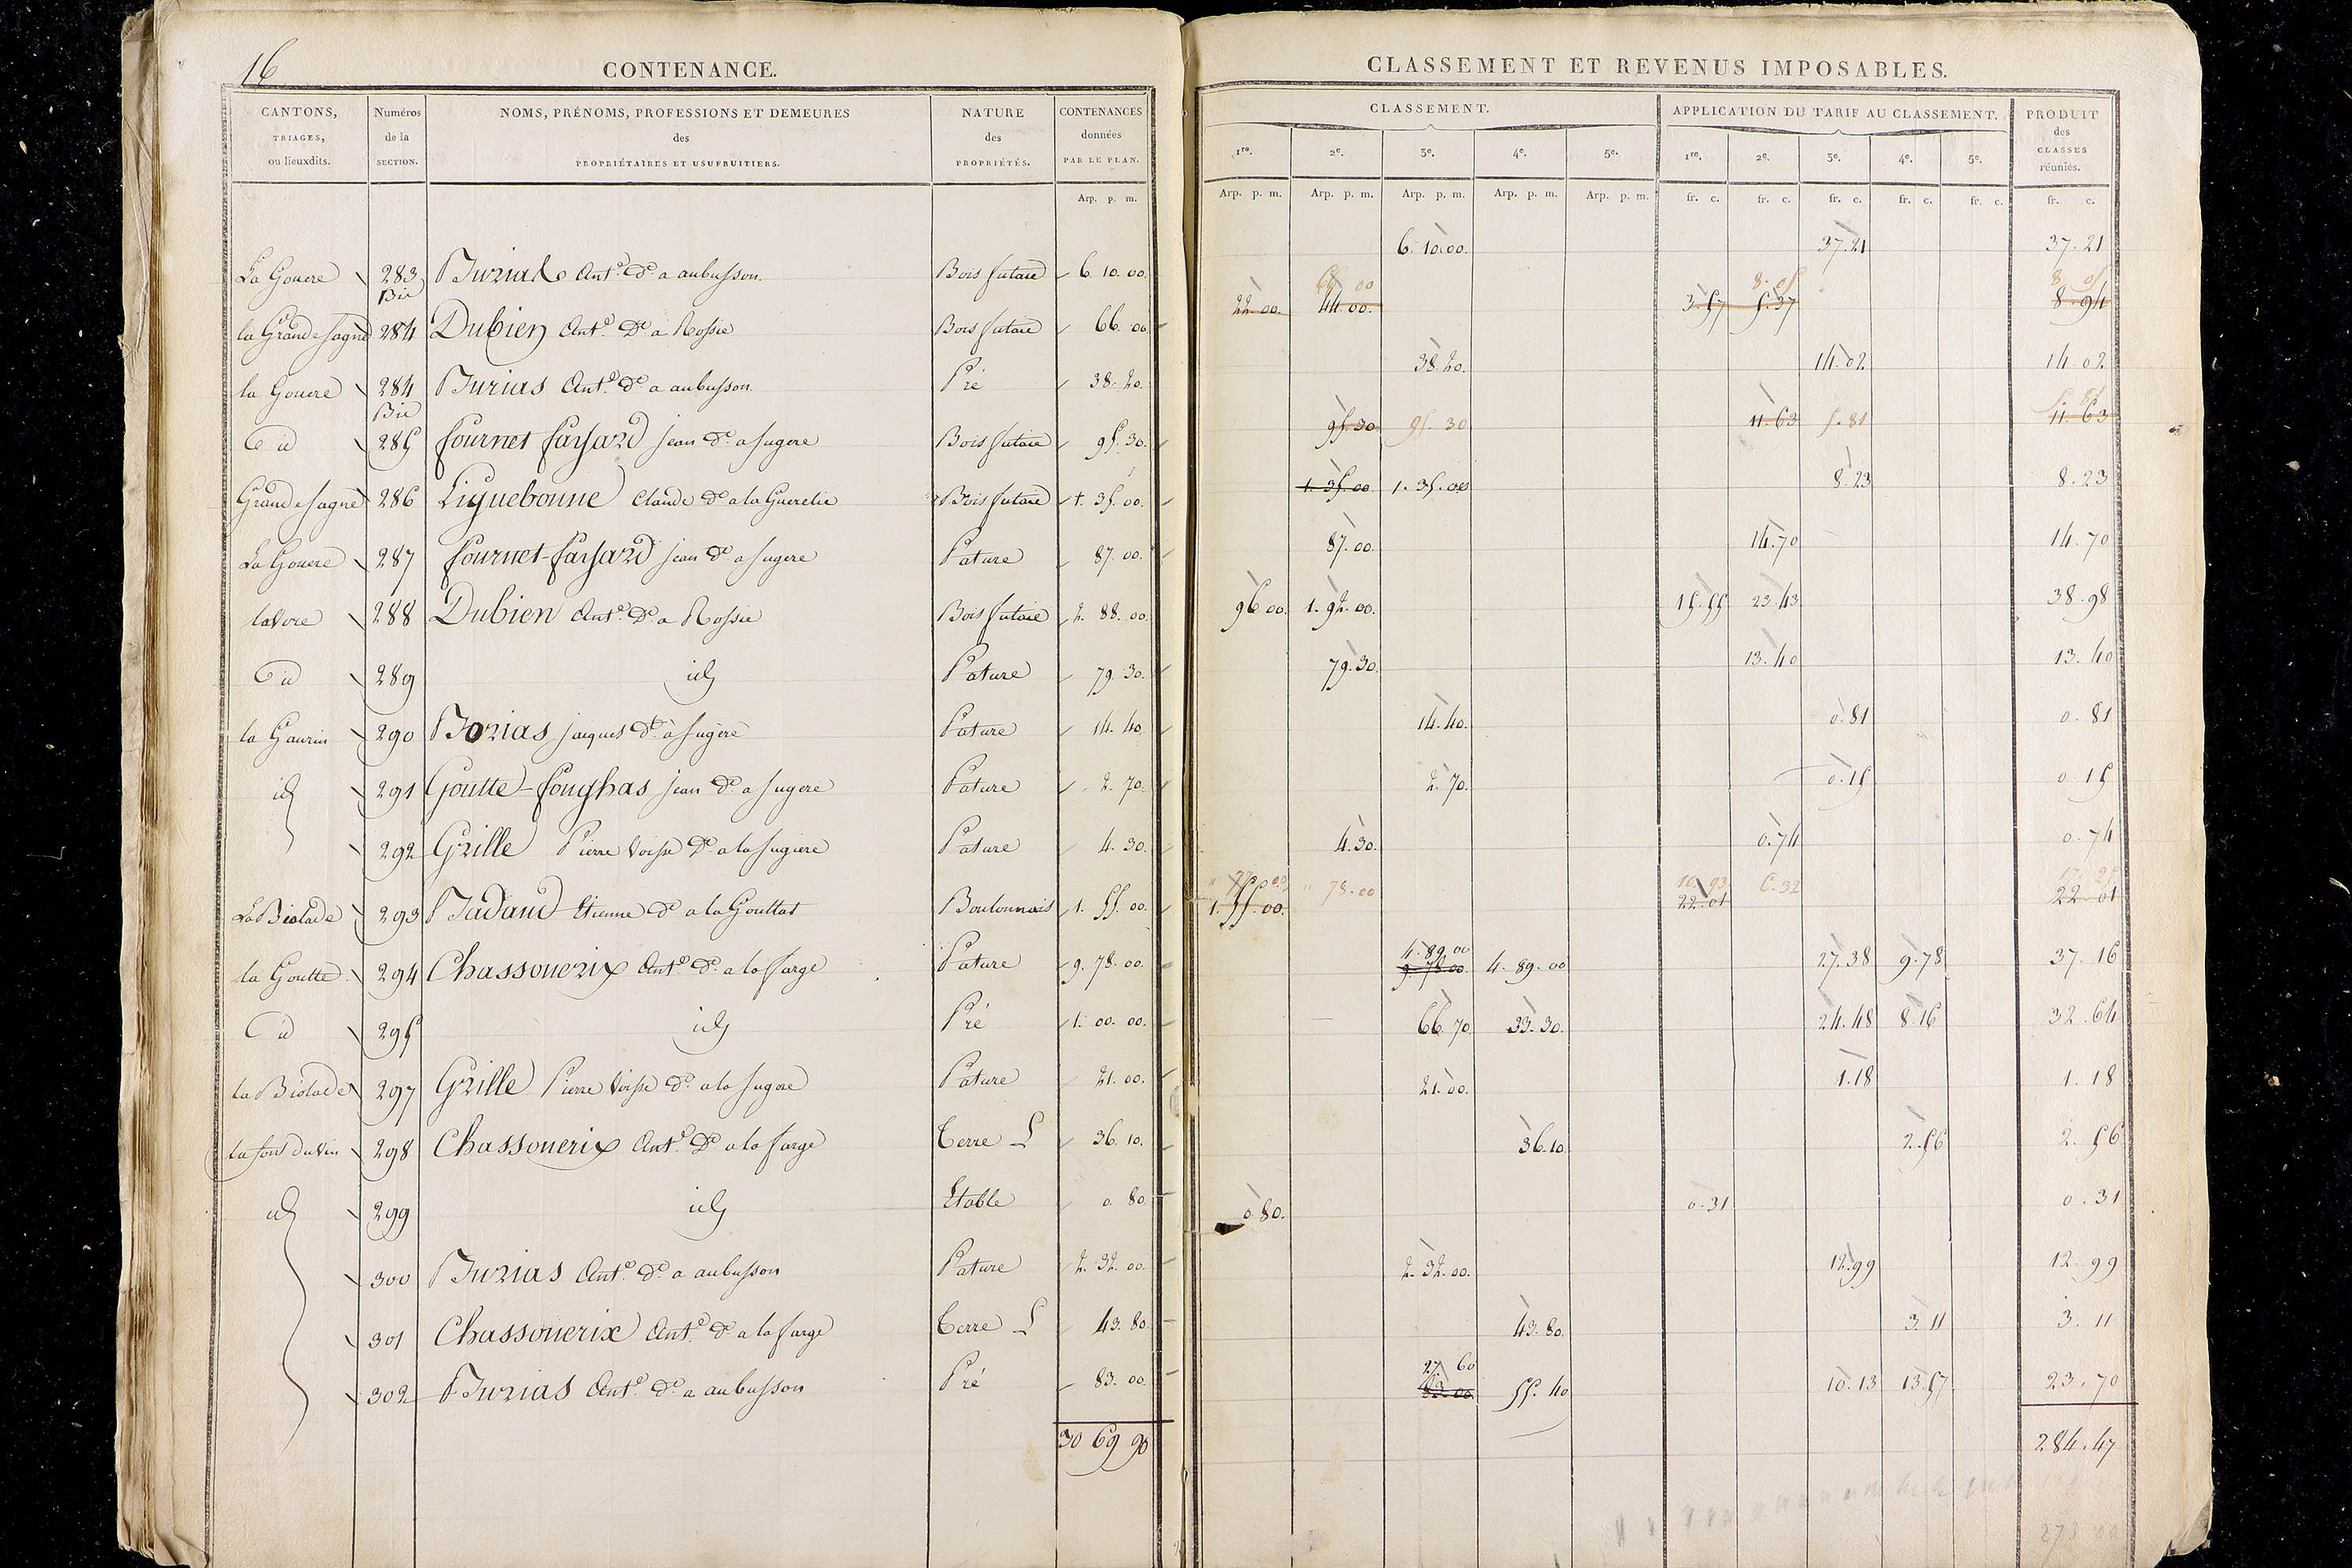 16
CONTENANCE.
CANTONS, TRIAGES, ou lieuxdits. | Numéros de la SECTION. | NOMS, PRÉNOMS, PROFESSIONS ET DEMEURES des PROPRIÉTAIRES ET USUFRUITIERS. | NATURE des PROPRIÉTÉS. | CONTENANCES données PAR LE PLAN.
Arp. p. m.
CLASSEMENT ET REVENUS IMPOSABLES.
CLASSEMENT. | APPLICATION DU TARIF AU CLASSEMENT. | PRODUIT des CLASSES réuniés.
1re. 2e. 3e. 4e. 5e. 1re. 2e. 3e. 4e. 5e.
Arp. p. m. Arp. p. m. Arp. p. m. Arp. p. m. Arp. p. m. fr. c. fr. c. fr. c. fr. c. fr. c. fr. c.
La Gouere 283 Bis Ant.e d.t a aubusson. Bois futaie 6. 10. 00. 6. 10. 00. 37. 21 37. 21
66 00 8. 05 8. 05
la Grande Sagne 284 Dubien Ant.e D.t a Rossie Bois futaie 66. 00 22. 00. 44. 00. 3. 57 5. 37 8. 94
la Gouere 284 Bis Burias Ant.e d.t a aubusson. Pré 38. 20. 38. 20. 14. 02 14. 02
5. 81
id 285 fournet fayard jean d.t a fugere Bois futaie 95. 30. 95. 30. 95. 30 11. 63 5. 81 11. 63
Grande Sagne 286 Liquebonne Claude d.t a la Bois futaie 1. 35. 00. 1. 35. 00. 1. 35. 00 8. 23 8. 23
La Gouere 287 fournet-fayard jean d.t a fugere Pature 87. 00. 87. 00. 14. 70 14. 70
288 Dubien Ant.e D.t a Rossie Bois futaie 2. 88. 00. 96 00. 1. 92. 00. 15. 55 23. 43 38. 98
id 289 id Pature 79. 30. 79. 30. 13. 40 13. 40
290 Borias jacques d.t à fugère Pature 14. 40. 14. 40. 0. 81 0. 81
id 291 Goutte-fonghas jean d.t a fugere Pature 2. 70. 2. 70. 0. 15 0. 15
292 Grille Pierre D.t a la fugiere Pature 4. 30. 4. 30. 0. 74 0. 74
77 00 10. 93
La Biolade 293 Etienne d.t a la Gouttat 1. 55. 00. 1. 55. 00. 78. 00 22. 01 6. 32 22. 01
4. 89. 00
la Goutte 294 Chassouerix Ant.e d.t a la farge Pature 9. 78. 00. 9. 78. 00. 4. 89. 00 27. 38 9. 78 37. 16
id 295 id Pré 1. 00. 00. 66. 70 33. 30. 24. 48 8. 16 32. 64
la Biolade 297 Grille Pierre d.t a la fugere Pature 21. 00. 21. 00. 1. 18 1. 18
la font du vin 298 Chassouerix Ant.e D.t a la farge Terre L 36. 10. 36. 10. 2. 56 2. 56
id 299 id Etable 0. 80 0. 80. 0. 31 0. 31
300 Burias Ant.e d.t a aubusson Pature 2. 32. 00. 2. 32. 00. 12. 99 12. 99
301 Chassouerix Ant.e d.t a la farge Terre L 43. 80 43. 80. 3. 11 3. 11
27 60
302 Burias Ant.e d.t a aubusson Pré 83. 00. 83. 00 55. 40 10. 13 13. 57 23. 70
30 69 90 284. 47